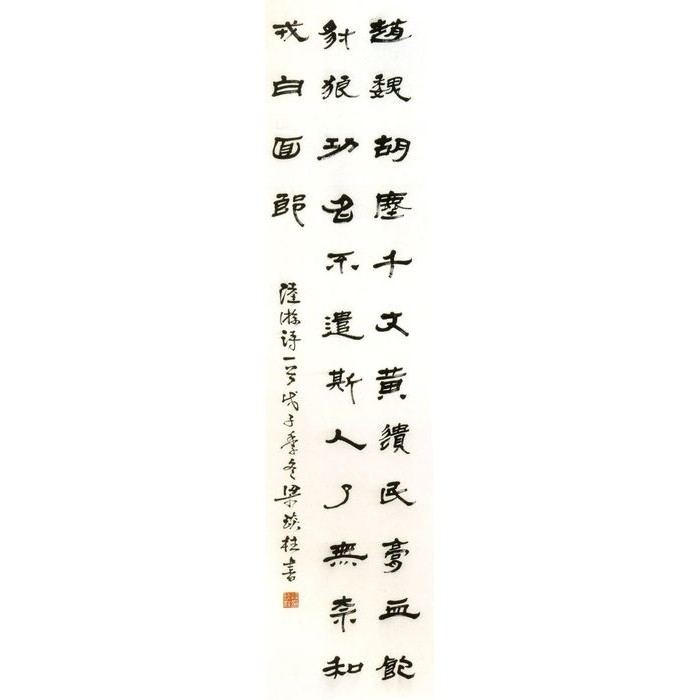 趙魏胡塵千丈黃遺民膏血飽
豺狼功名不遣斯人了無奈和
戎白面郎
陸游詩一首戊子季冬梁柱書